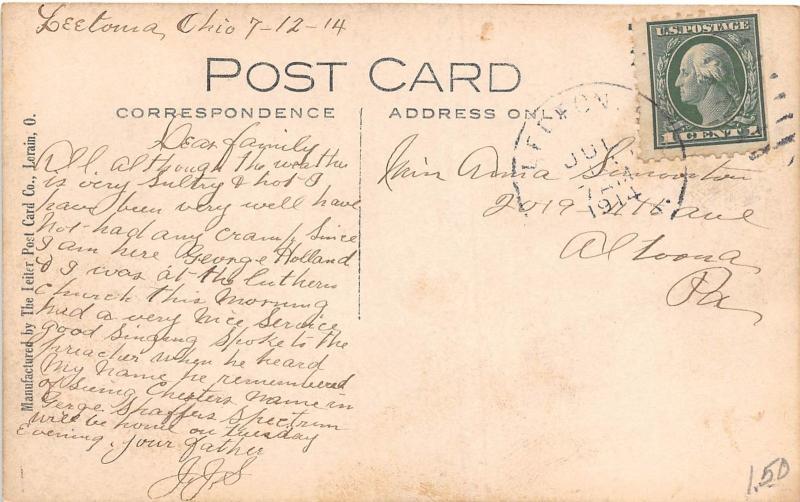 Leetonia, Ohio 7-12-14
POST CARD
CORRESPONDENCE
ADDRESS ONLY
Manufactured by The Leiter Post Card Co., Lorain, O.
U.S. POSTAGE
1 CENT 1
JUL
1914
Dear family
All. although the weather
is very sultry & hot I
have been very well have
not had any cramps since
I am here George Holland
& I was at the Luthern
Church this Morning
had a very nice Service
good Singing Spoke to the
preacher when he heard
My Name he remembered
of Seing Chesters name in
Gerge Shaffers Spectrum
will be home on Tuesday
Evening. your father
J.J.S
Miss Anna
2019 - ave
Altoona
Pa
1.50